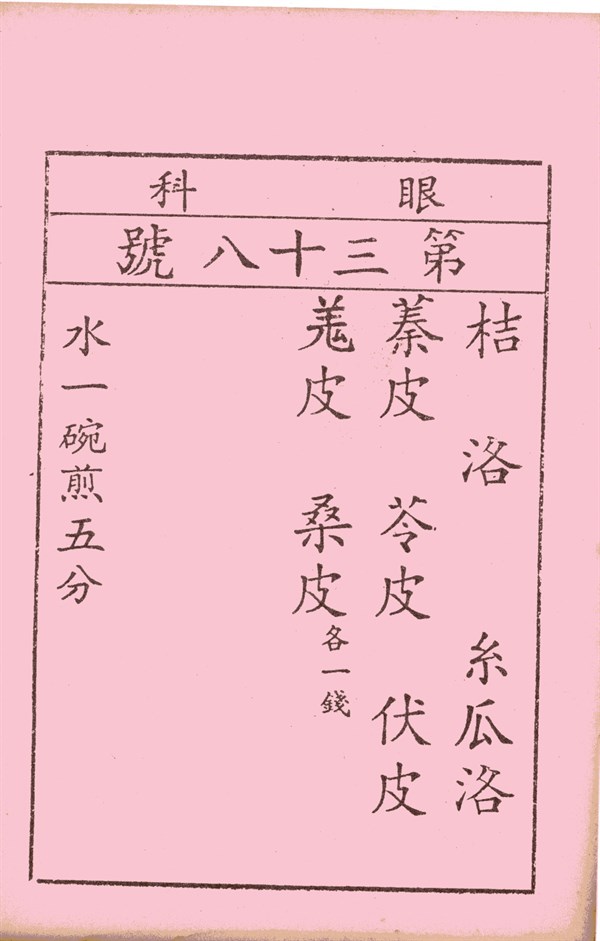 眼科
第三十八號
桔洛 糸瓜洛
蓁皮 苓皮 伏皮
羗皮 桑皮 各一錢
水一碗煎五分